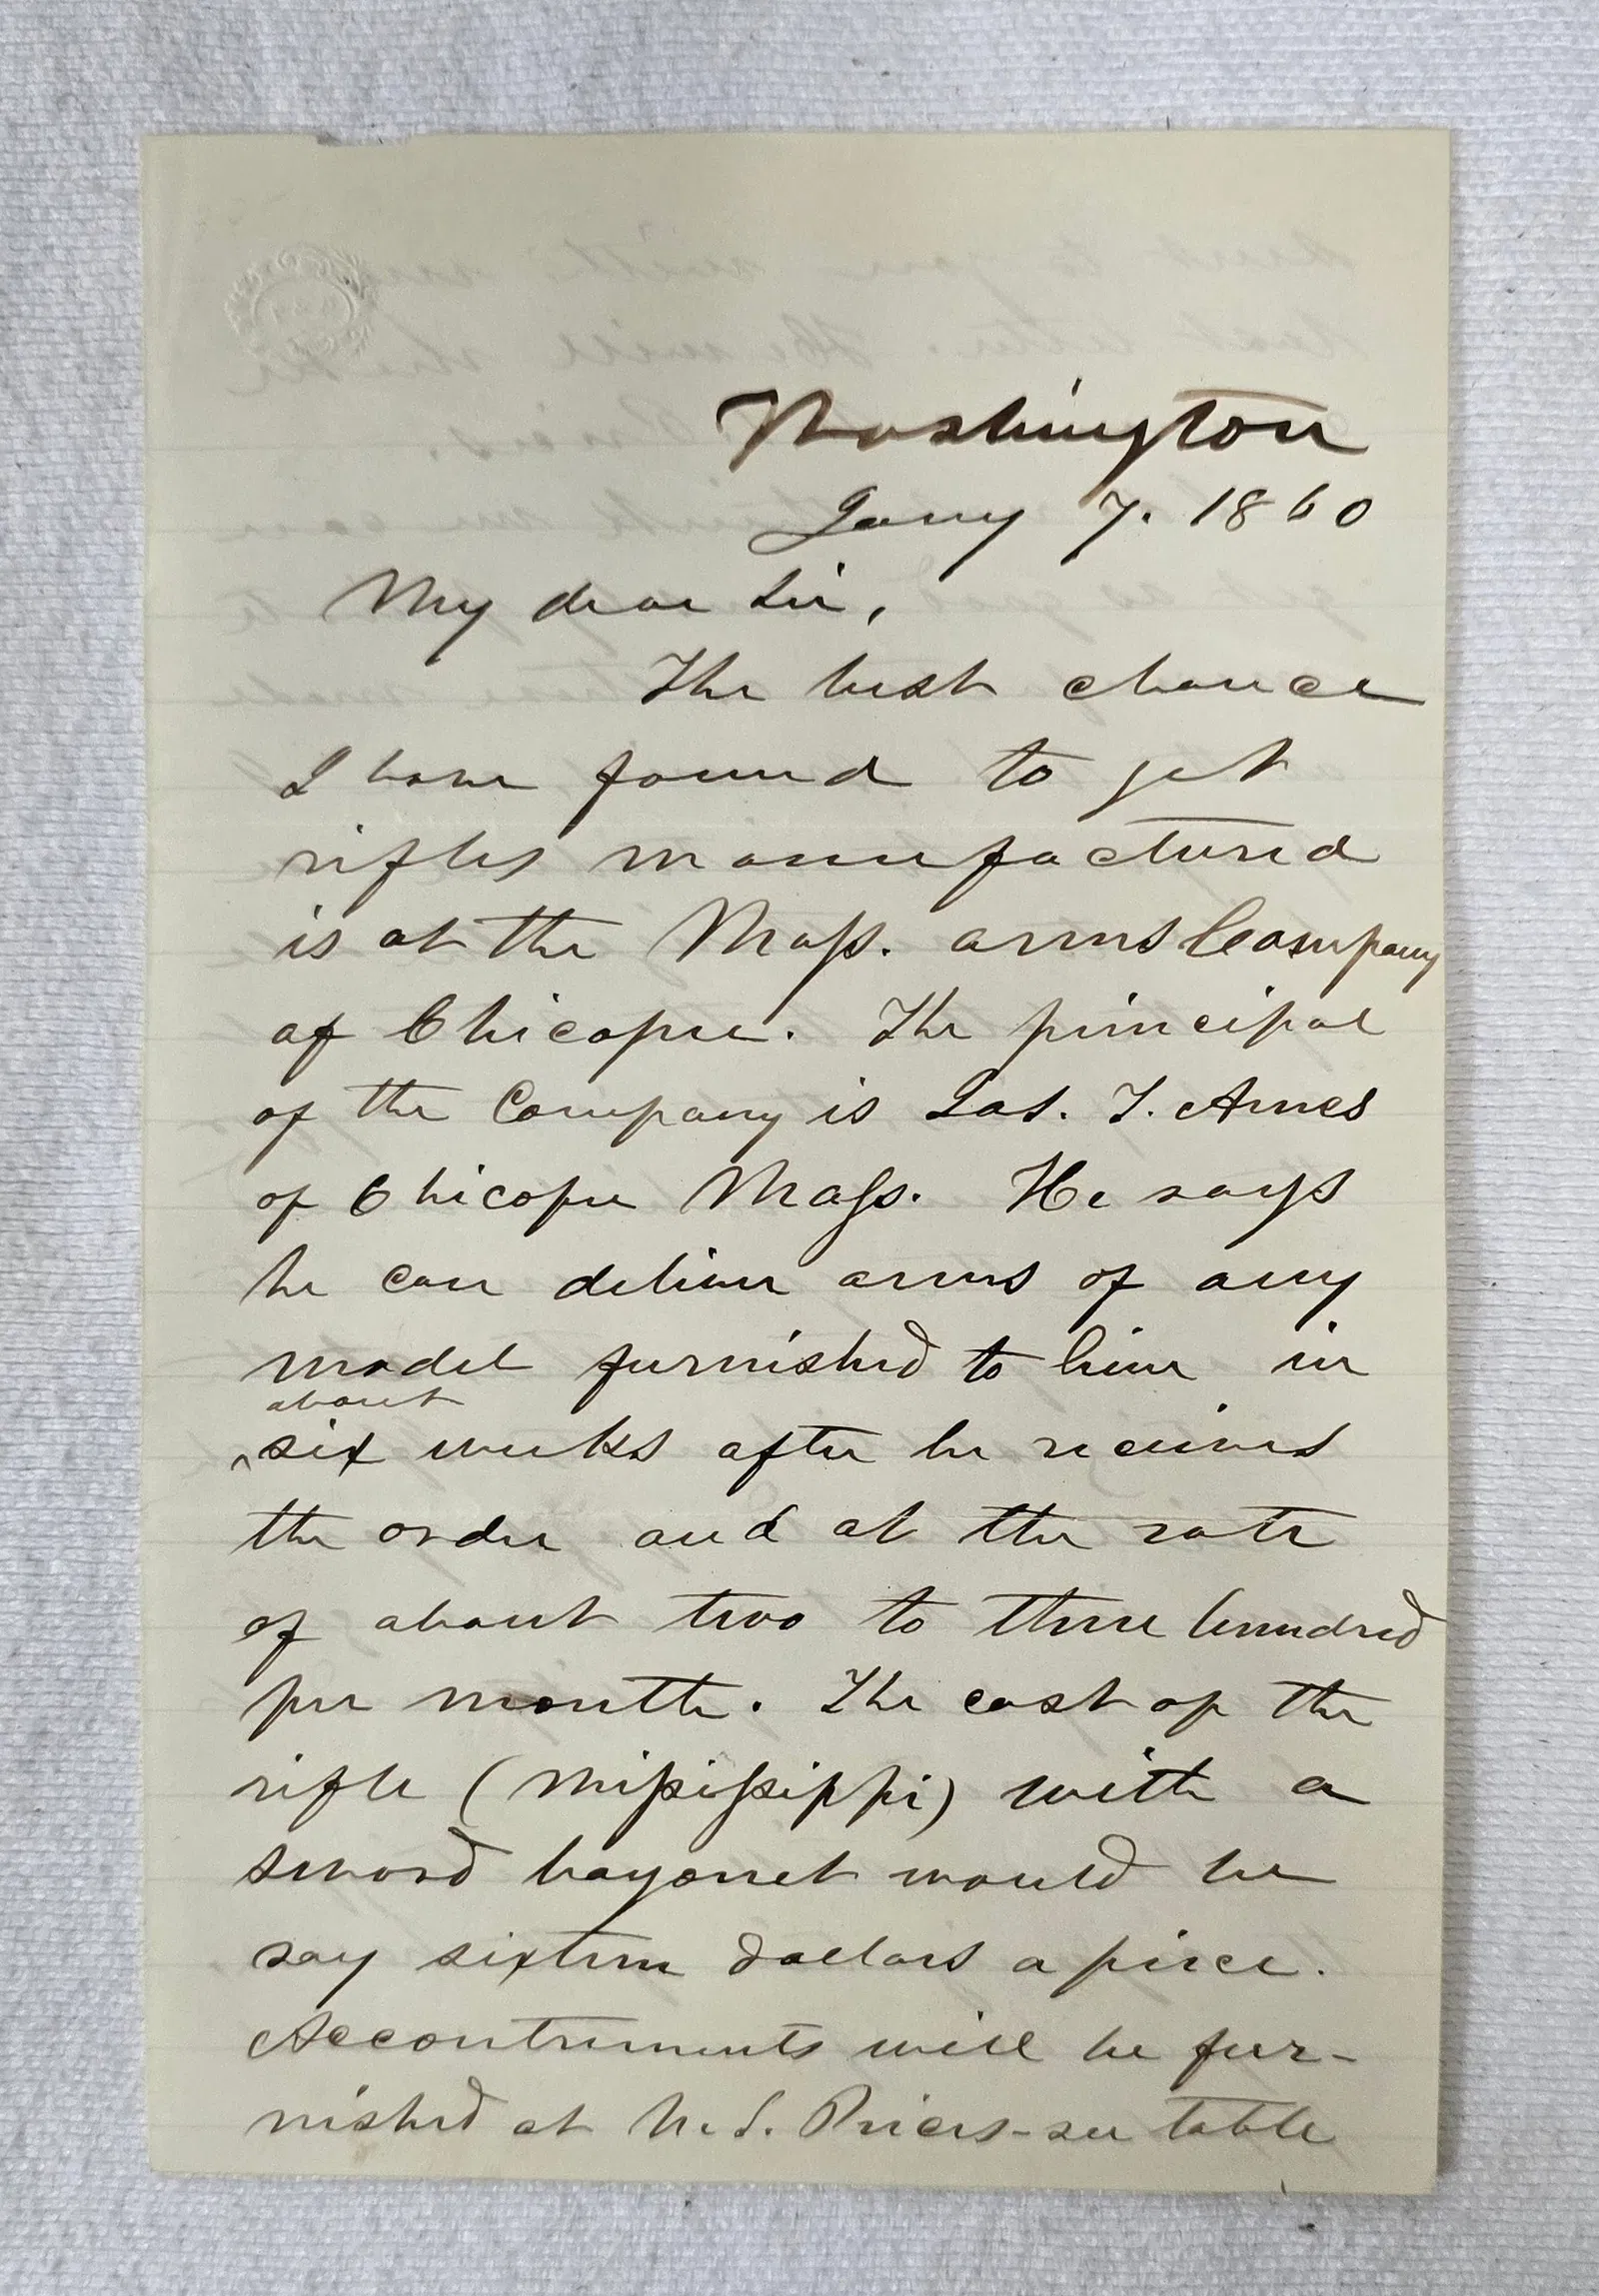 Washington
Jany 7. 1860
My dear Sir,
The best chance
I have found to get
rifles manufactured
is at the Mass. arms Company
of Chicopee. The principal
of the Company is Jas. T. Ames
of Chicopee Mass. He says
he can deliver arms of any
model furnished to him in
about
^six weeks after he receives
the order and at the rate
of about two to three hundred
per month. The cost of the
rifle (Mississippi) with a
sword bayonet would be
say sixteen dollars a piece.
Accoutrements will be fur-
nished at U.S. Prices - see table